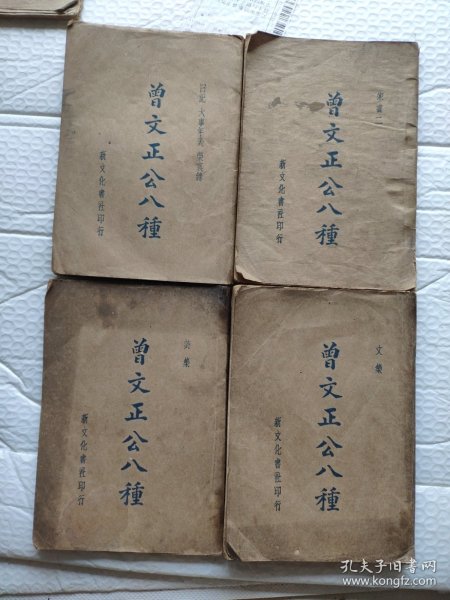 日記 大事年表 榮哀錄
曾文正公八種
新文化書社印行
家書二
曾文正公八種
新文化書社印行
曾文正公八種
新文化書社印行
文集
曾文正公八種
新文化書社印行
孔夫子旧书网
www.kongfz.com